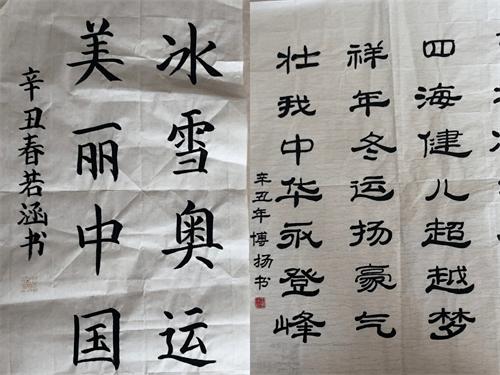 冰雪奥运
美丽中国
辛丑春若涵书
四海健儿超越梦
祥年冬运扬豪气
壮我中华永登峰
辛丑年博扬书